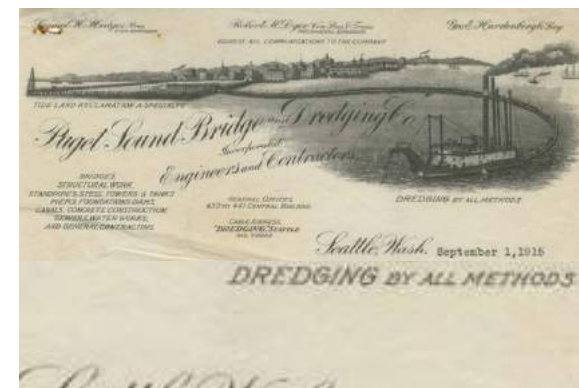 Samuel H. Hedges, Pres.
Robert M. Dyer Vice Pres & Treas.
Geo. F. Hardenbergh, Secy
ADDRESS ALL COMMUNICATIONS TO THE COMPANY
TIDE LAND RECLAMATION A SPECIALTY
Puget Sound Bridge and Dredging Co.
Incorporated
Engineers and Contractors
BRIDGES
STRUCTURAL WORK
STANDPIPES, STEEL TOWERS & TANKS
PIERS, FOUNDATIONS, DAMS,
CANALS, CONCRETE CONSTRUCTION
SEWERS, WATER WORKS,
AND GENERAL CONTRACTORS
GENERAL OFFICES
CENTRAL BUILDING
CABLE ADDRESS,
"DREDGING," SEATTLE
DREDGING BY ALL METHODS
Seattle, Wash. September 1, 1915
DREDGING BY ALL METHODS